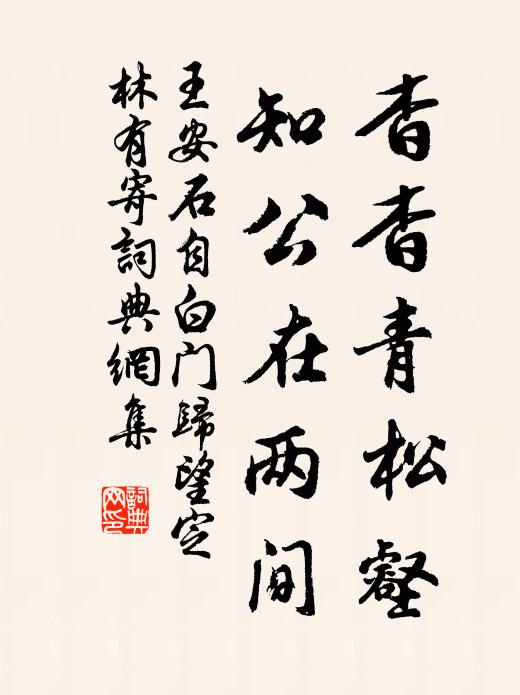 杳杳青松壑
知公在两间
王安石自白门歸望定
林有寄詞典網集
詞典网印